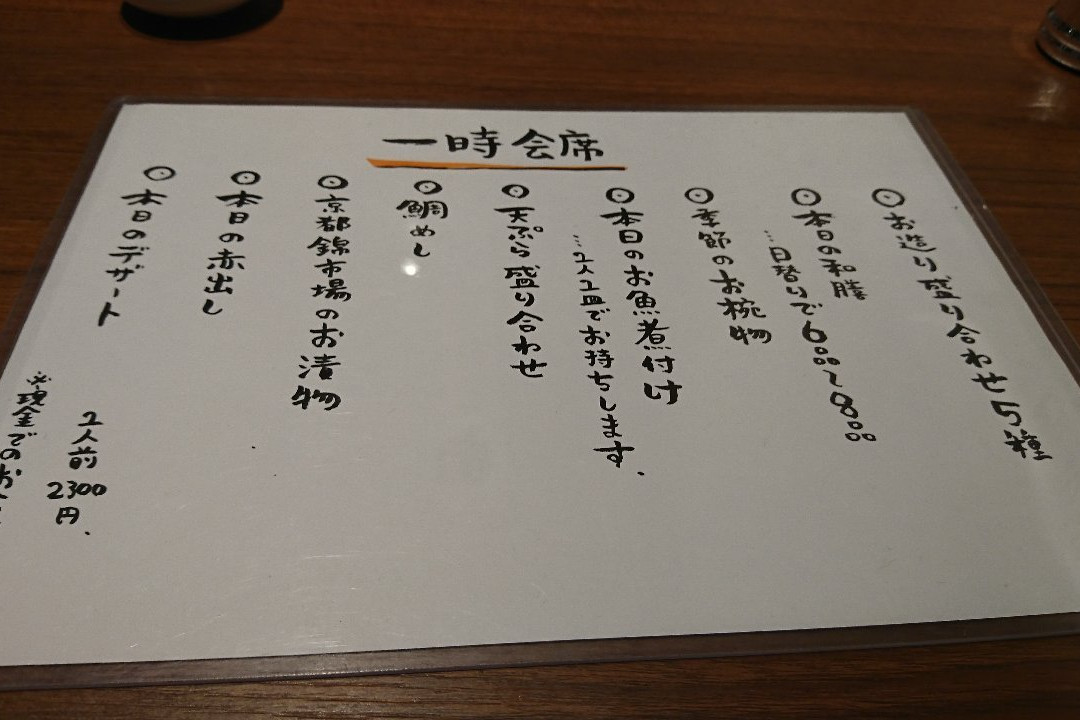 一時会席
⊙お造り盛り合わせ5種
⊙本日の和膳
…日替りで6品〜8品
⊙季節のお椀物
⊙本日のお魚煮付け
…2人1皿でお持ちします.
⊙天ぷら盛り合わせ
⊙鯛めし
⊙京都錦市場のお漬物
⊙本日の赤出し
⊙本日のデザート
2人前2300円.
※現金でのお